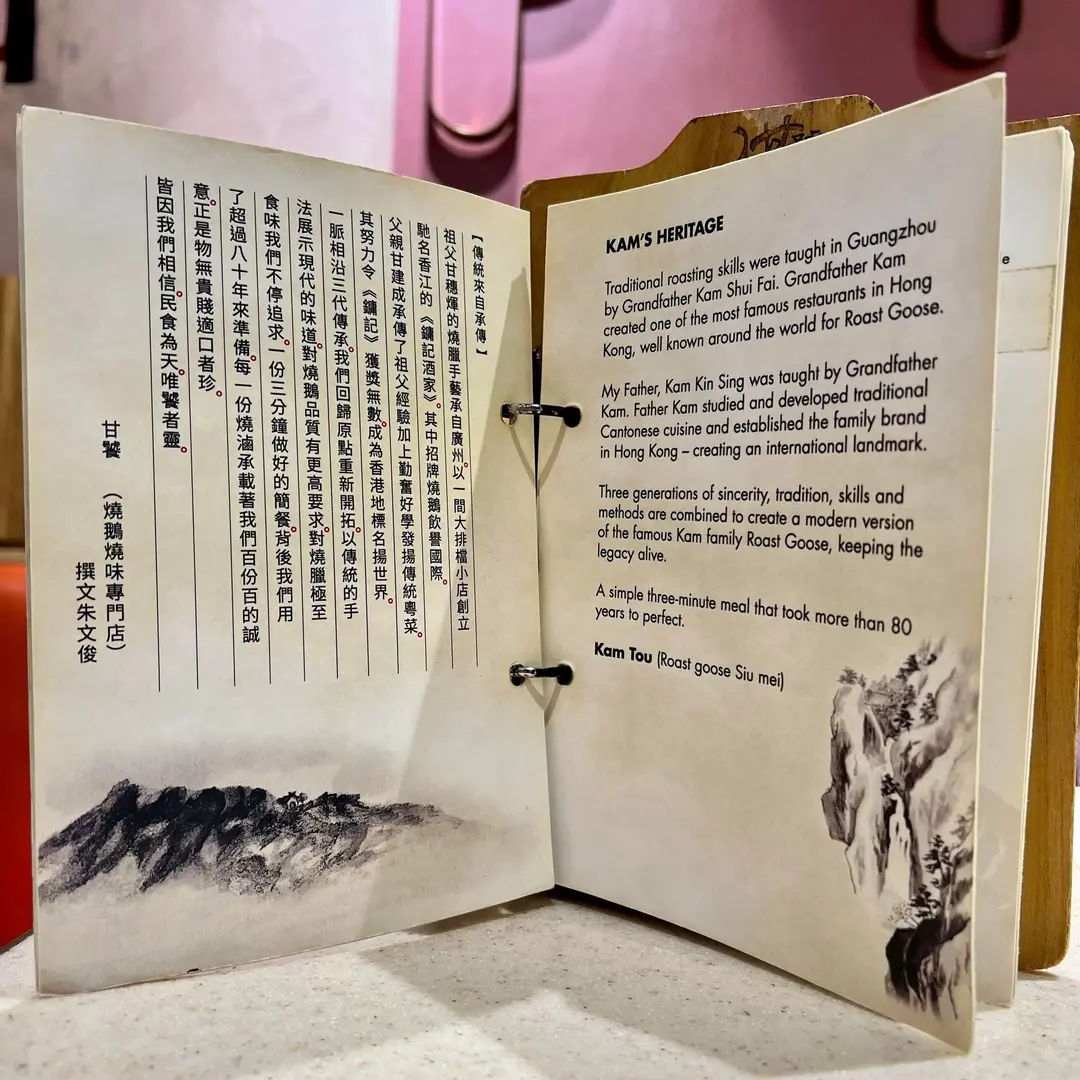 【傳統來自承傳】
祖父甘穗煇的燒臘手藝承自廣州。以一間大排檔小店創立
馳名香江的《鏞記酒家》。其中招牌燒鵝飲譽國際。
父親甘建成承傳了祖父經驗加上勤奮好學發揚傳統粵菜。
其努力令《鏞記》獲獎無數。成為香港地標名揚世界。
一脈相沿三代傳承。我們回歸原點重新開拓。以傳統的手
法展示現代的味道。對燒鵝品質有更高要求。對燒臘極至
食味我們不停追求。一份三分鐘做好的簡餐。背後我們用
了超過八十年來準備。每一份燒滷承載著我們百份百的誠
意。正是物無貴賤適口者珍。
皆因我們相信。民食為天。唯饕者靈。
甘饕 （燒鵝燒味專門店）
撰文朱文俊
KAM'S HERITAGE
Traditional roasting skills were taught in Guangzhou
by Grandfather Kam Shui Fai. Grandfather Kam
created one of the most famous restaurants in Hong
Kong, well known around the world for Roast Goose.
My Father, Kam Kin Sing was taught by Grandfather
Kam. Father Kam studied and developed traditional
Cantonese cuisine and established the family brand
in Hong Kong – creating an international landmark.
Three generations of sincerity, tradition, skills and
methods are combined to create a modern version
of the famous Kam family Roast Goose, keeping the
legacy alive.
A simple three-minute meal that took more than 80
years to perfect.
Kam Tou (Roast goose Siu mei)